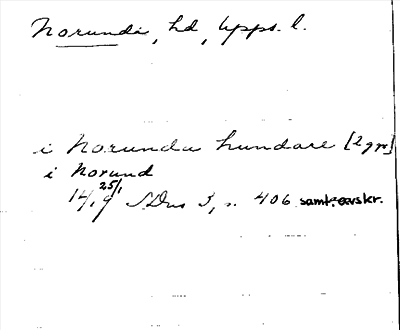 Norunda, hd, Upps. l.
i Norunda hundare [2 gr]
i Norund
14,9 25/1 SDns 3, s. 406 samt. avskr.